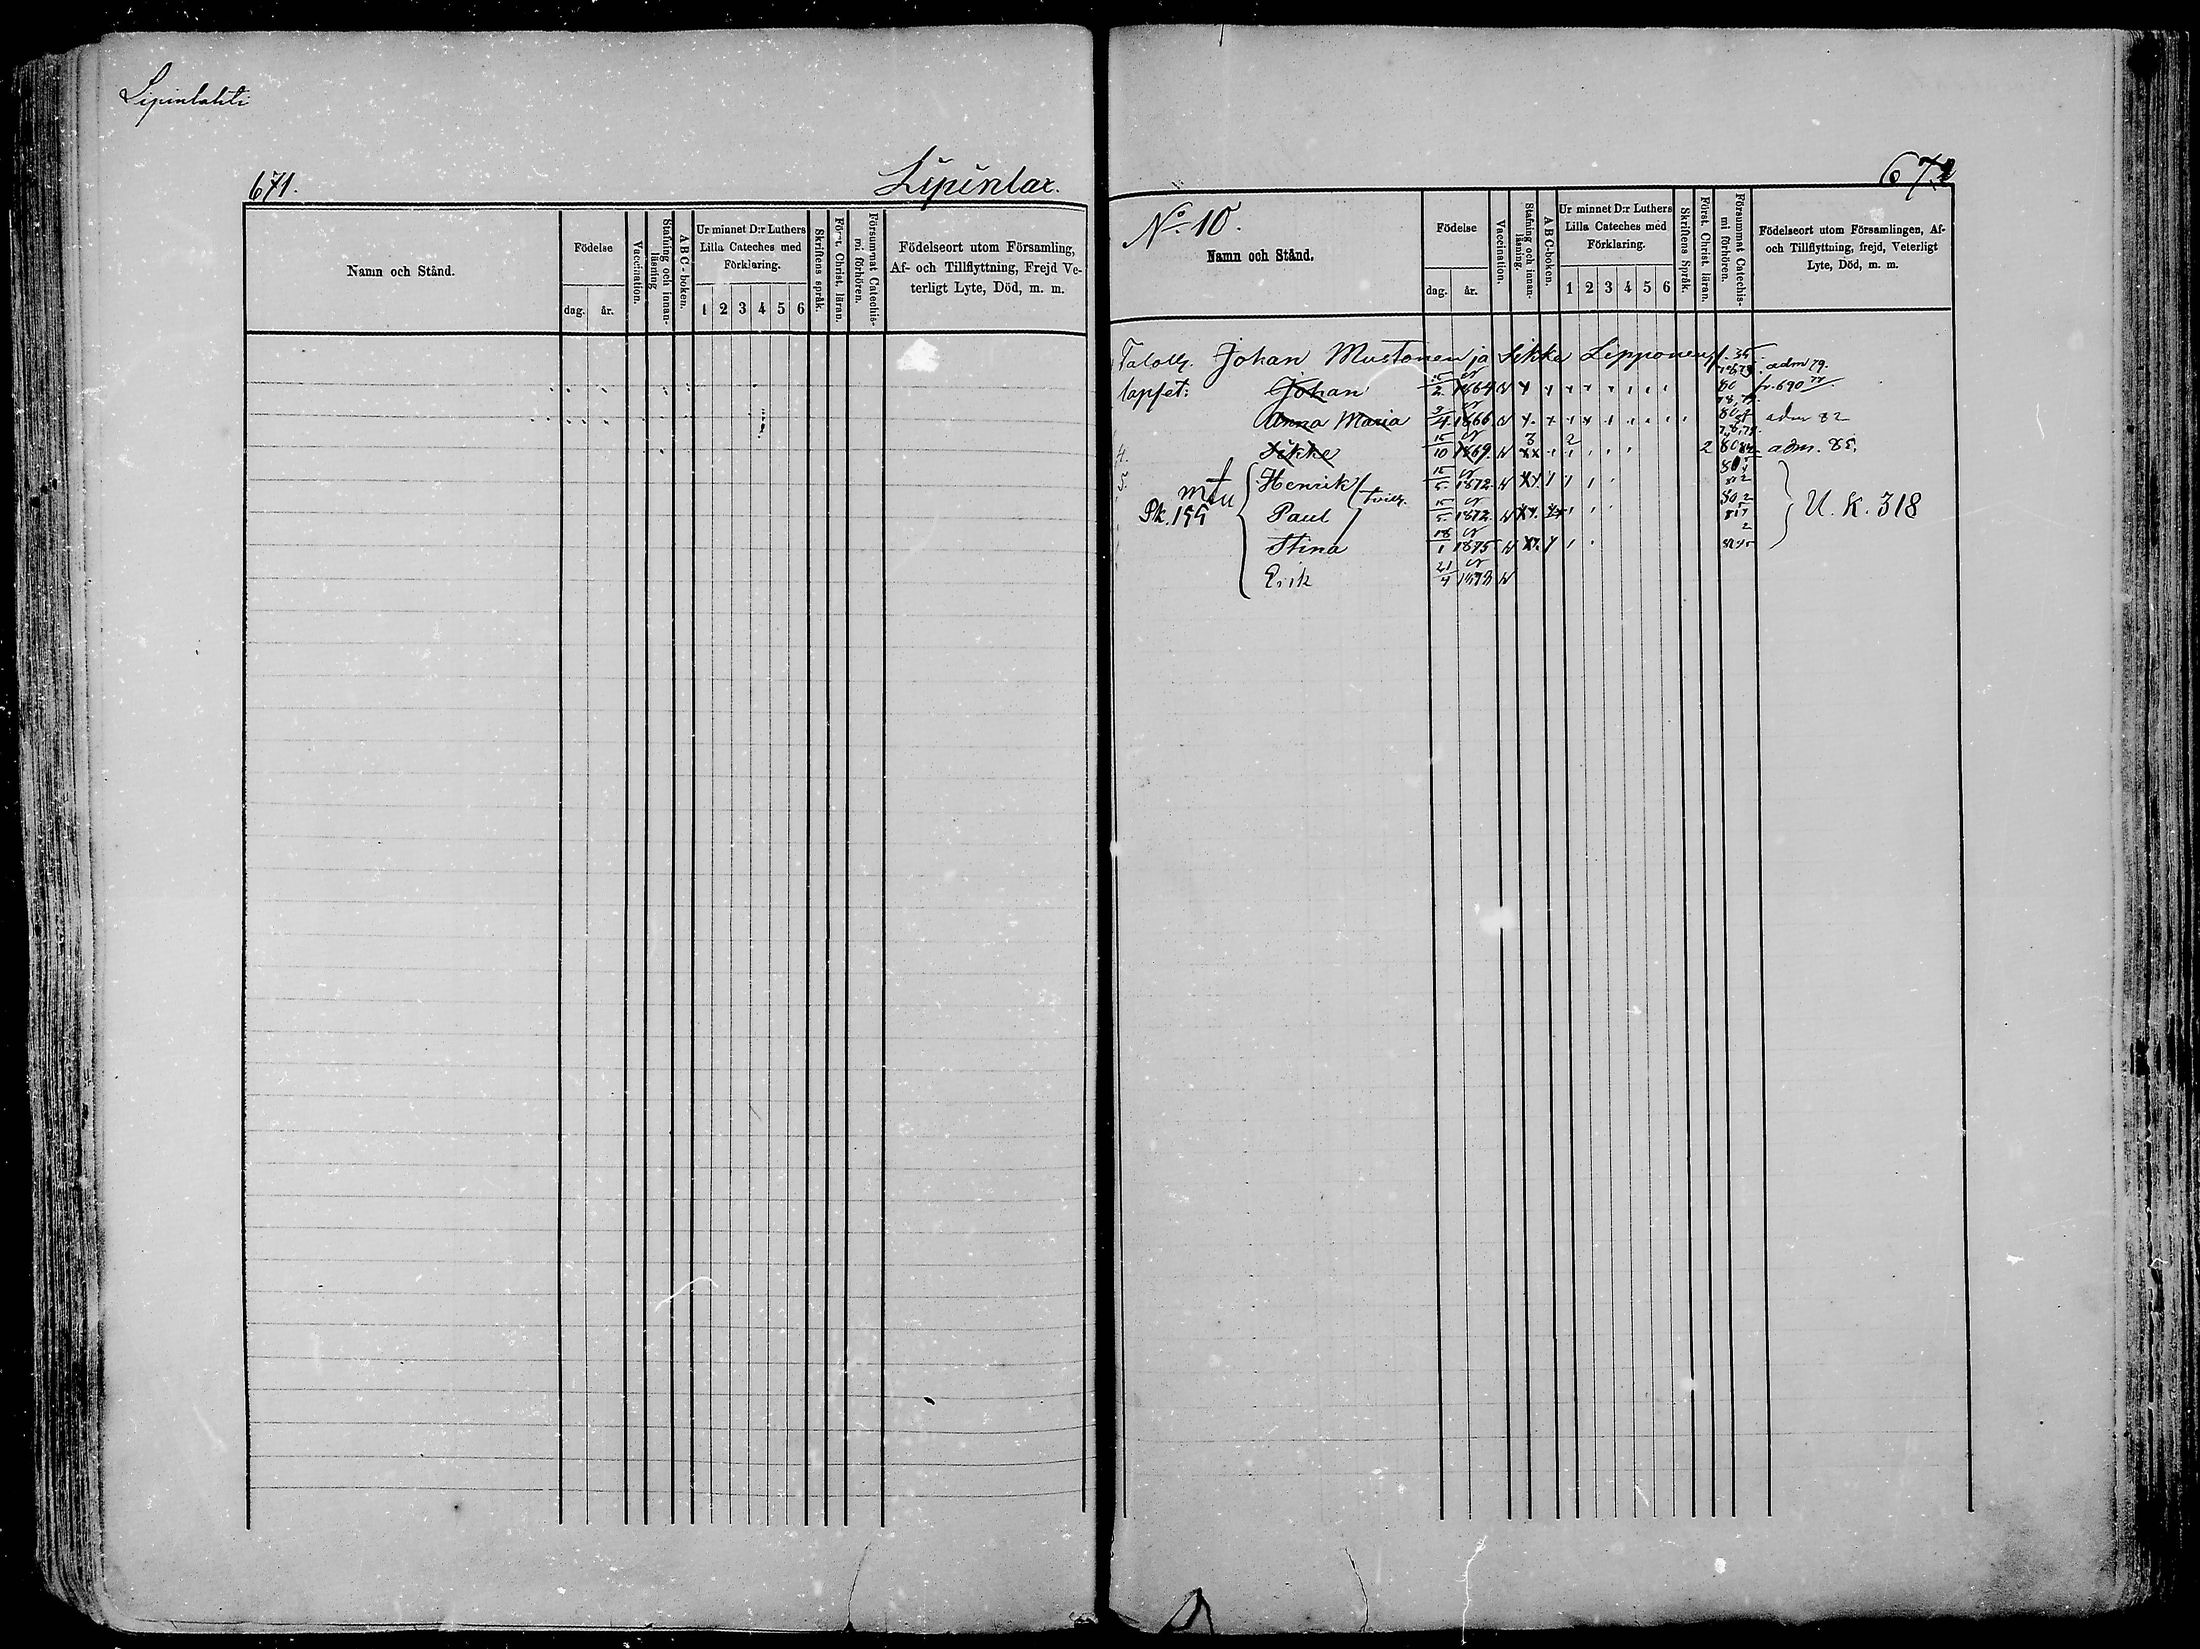 Lipinlahti
671. Lipinlax.
Namn och Stånd.
Födelse
dag. år.
Vaccination.
Stafning och innan-läsning
A B C-boken.
Ur minnet D:r Luthers
Lilla Cateches med
Förklaring.
1 2 3 4 5 6
Skriftens språk.
Först. Christ. läran.
Försummat Catechis-mi förhören.
Födelseort utom Församling,
Af- och Tillflyttning, Frejd Ve-
terligt Lyte, Död, m. m.
672
No 10.
Namn och Stånd.
Födelse
dag. år.
Vaccination.
Stafning och innan-läsning.
A B C-boken.
Ur minnet D:r Luthers
Lilla Cateches med
Förklaring.
1 2 3 4 5 6
Skriftens Språk.
Först. Christ. läran.
Försummat Catechis-mi förhören.
Födelseort utom Församlingen, Af-
och Tillflyttning, frejd, Veterligt
Lyte, Död, m. m.
Johan Mustonen ja Sikke Lipponen
lapset: Johan 1864 adm 79.
Anna Maria 1866 adm 82
4. Sikke 15/10 1869 adm. 85.
5. Henrik 15/5 1872
Pk. 199 Paul 15/5 1872 U. K. 318
Stina 18/1 1875
Erik 21/4